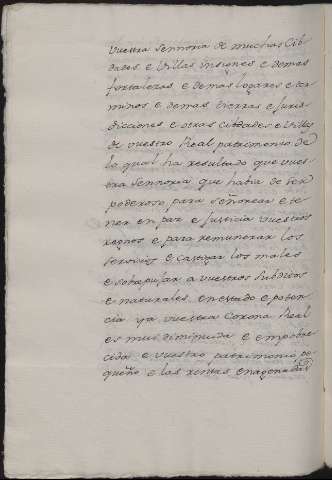 vuestra Sennoria de muchas Cib
dades e Villas insignes e demas
fortalezas e demas logares e ter
minos e demas tierras e Juris
dicciones e otras Cibdades e Villas
de vuestro Real patrimonio de
lo qual ha resultado que vues
tra Sennoria que habia de ser
poderoso para señorear e te
ner en paz e Justicia vuestros
regnos e para remunerar los
servicios e castigar los males
e sobrepujar a vuestros Subditos
e naturales en estado e poten
cia ya vuestra Corona Real
es muy diminuida e empobre
cida e vuestro patrimonio pe
queño e las rentas enagenadas